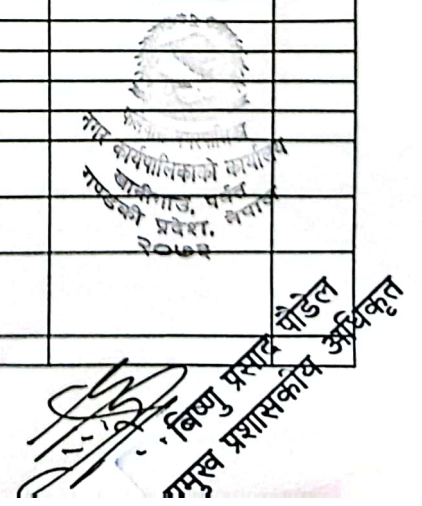 नगर कार्यपालिकाको कार्यालय
पर्वत
गण्डकी प्रदेश, नेपाल
२०७३
बिष्णु प्रसाद पौडेल
प्रमुख प्रशासकीय अधिकृत